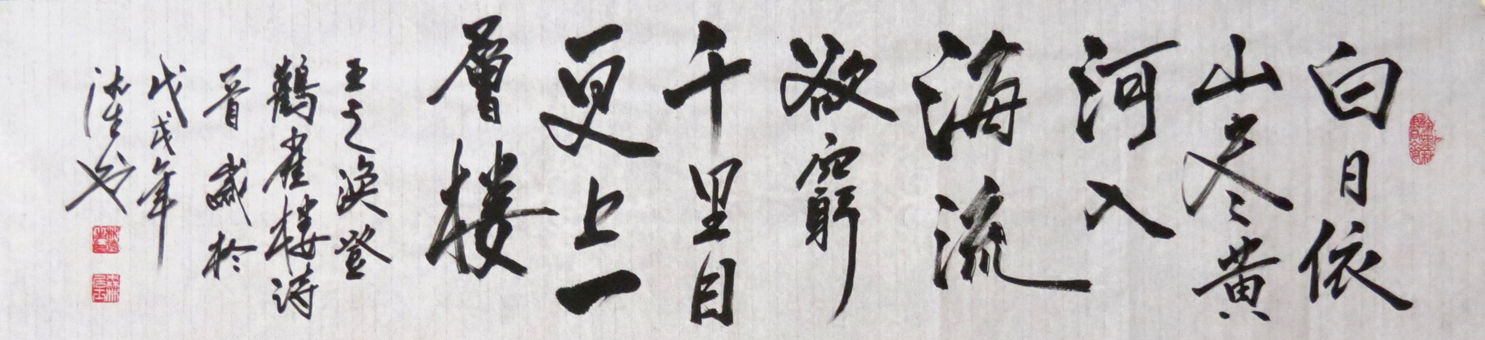 白日依
山尽黄
河入
海流
欲窮
千里目
更上一
層楼
王之涣登
鸛雀楼诗
戊戌年